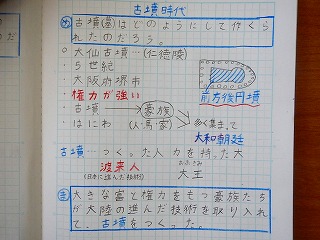 古墳時代
め 古墳(墓)はどのようにして作く
られたのだろう。
○ 大仙古墳…(仁徳陵)
・5世紀
・大阪府堺市
・権力が強い
前方後円墳
・古墳 → 豪族
・はにわ (人、馬、家) → 多く集まって
大和朝廷
古墳…つくった人 力を持った人
渡来人
(日本に進んだ技術)
おおきみ
大王
ま 大きな富と権力をもつ豪族たち
が大陸の進んだ技術を取り入れ
て、古墳をつくった。